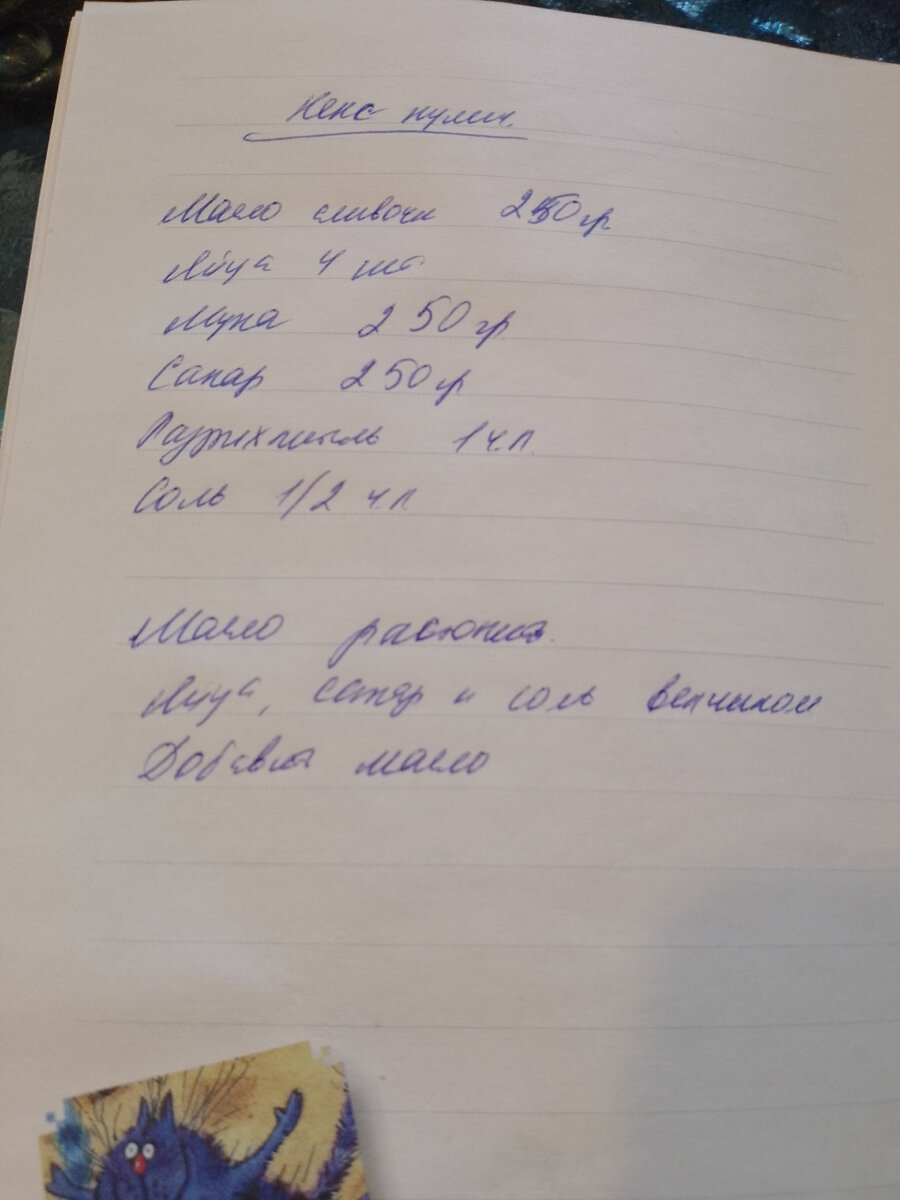 Кекс кулич.
Масло сливочн 250 гр
Яйца 4 шт.
Мука 250 гр
Сахар 250 гр
Разрыхлитель 1 ч.л.
Соль 1/2 ч.л.
Масло растопить.
Яйца, сахар и соль венчиком
Добавить масло